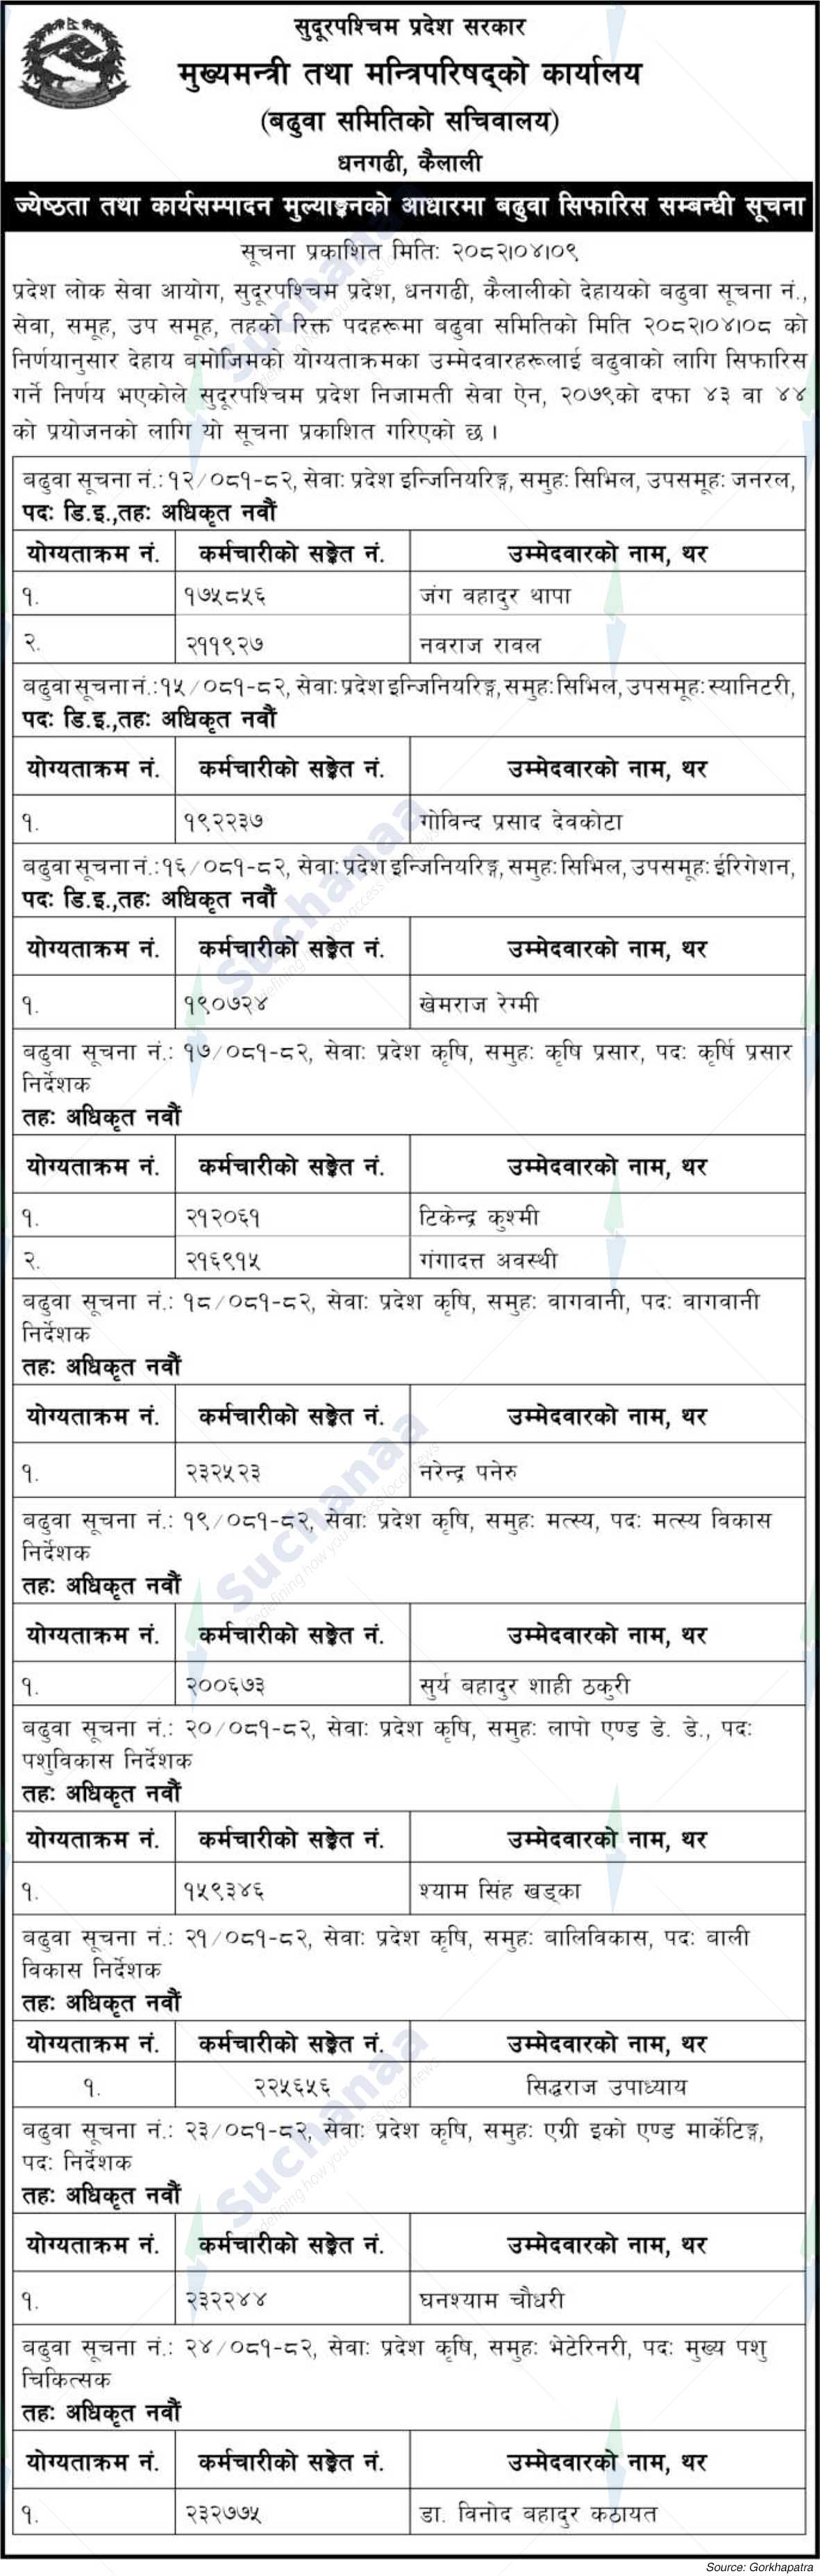 सुदूरपश्चिम प्रदेश सरकार
मुख्यमन्त्री तथा मन्त्रिपरिषद्को कार्यालय
(बढुवा समितिको सचिवालय)
धनगढी, कैलाली
ज्येष्ठता तथा कार्यसम्पादन मुल्याङ्कनको आधारमा बढुवा सिफारिस सम्बन्धी सूचना
सूचना प्रकाशित मितिः २०८२।०४।०९
प्रदेश लोक सेवा आयोग, सुदूरपश्चिम प्रदेश, धनगढी, कैलालीको देहायको बढुवा सूचना नं.,
सेवा, समूह, उप समूह, तहको रिक्त पदहरूमा बढुवा समितिको मिति २०८२।०४।०८ को
निर्णयानुसार देहाय बमोजिमको योग्यताक्रमका उम्मेदवारहरूलाई बढुवाको लागि सिफारिस
गर्ने निर्णय भएकोले सुदूरपश्चिम प्रदेश निजामती सेवा ऐन, २०७९को दफा ४३ वा ४४
को प्रयोजनको लागि यो सूचना प्रकाशित गरिएको छ ।
बढुवा सूचना नं.:१२/०८१-८२, सेवाः प्रदेश इन्जिनियरिङ्ग, समुहः सिभिल, उपसमूहः जनरल,
पदः डि.इ.,तहः अधिकृत नवौं
योग्यताक्रम नं. कर्मचारीको सङ्केत नं. उम्मेदवारको नाम, थर
१. १७५८५६ जंग वहादुर थापा
२. २११९२७ नवराज रावल
बढुवा सूचना नं.:१५/०८१-८२, सेवाः प्रदेश इन्जिनियरिङ्ग, समुहः सिभिल, उपसमूहः स्यानिटरी,
पदः डि.इ.,तहः अधिकृत नवौं
योग्यताक्रम नं. कर्मचारीको सङ्केत नं. उम्मेदवारको नाम, थर
१. १९२२३७ गोविन्द प्रसाद देवकोटा
बढुवा सूचना नं.:१६/०८१-८२, सेवाः प्रदेश इन्जिनियरिङ्ग, समुहः सिभिल, उपसमूहः ईरिगेशन,
पदः डि.इ.,तहः अधिकृत नवौं
योग्यताक्रम नं. कर्मचारीको सङ्केत नं. उम्मेदवारको नाम, थर
१. १९०७२४ खेमराज रेग्मी
बढुवा सूचना नं.: १७/०८१-८२, सेवाः प्रदेश कृषि, समुहः कृषि प्रसार, पदः कृर्षि प्रसार
निर्देशक
तहः अधिकृत नवौं
योग्यताक्रम नं. कर्मचारीको सङ्केत नं. उम्मेदवारको नाम, थर
१. २१२०६१ टिकेन्द्र कुश्मी
२. २१६९१५ गंगादत्त अवस्थी
बढुवा सूचना नं.: १८/०८१-८२, सेवाः प्रदेश कृषि, समुहः वागवानी, पदः वागवानी
निर्देशक
तहः अधिकृत नवौं
योग्यताक्रम नं. कर्मचारीको सङ्केत नं. उम्मेदवारको नाम, थर
१. २३२५२३ नरेन्द्र पनेरु
बढुवा सूचना नं.: १९/०८१-८२, सेवाः प्रदेश कृषि, समुहः मत्स्य, पदः मत्स्य विकास
निर्देशक
तहः अधिकृत नवौं
योग्यताक्रम नं. कर्मचारीको सङ्केत नं. उम्मेदवारको नाम, थर
१. २००६७३ सुर्य बहादुर शाही ठकुरी
बढुवा सूचना नं.: २०/०८१-८२, सेवाः प्रदेश कृषि, समुहः लापो एण्ड डे. डे., पदः
पशुविकास निर्देशक
तहः अधिकृत नवौं
योग्यताक्रम नं. कर्मचारीको सङ्केत नं. उम्मेदवारको नाम, थर
१. १५९३४६ श्याम सिंह खड्का
बढुवा सूचना नं.: २१/०८१-८२, सेवाः प्रदेश कृषि, समुहः बालिविकास, पदः बाली
विकास निर्देशक
तहः अधिकृत नवौं
योग्यताक्रम नं. कर्मचारीको सङ्केत नं. उम्मेदवारको नाम, थर
१. २२५६५६ सिद्धराज उपाध्याय
बढुवा सूचना नं.: २३/०८१-८२, सेवाः प्रदेश कृषि, समुहः एग्री इको एण्ड मार्केटिङ्ग,
पदः निर्देशक
तहः अधिकृत नवौं
योग्यताक्रम नं. कर्मचारीको सङ्केत नं. उम्मेदवारको नाम, थर
१. २३२२४४ घनश्याम चौधरी
बढुवा सूचना नं.: २४/०८१-८२, सेवाः प्रदेश कृषि, समुहः भेटेरिनरी, पदः मुख्य पशु
चिकित्सक
तहः अधिकृत नवौं
योग्यताक्रम नं. कर्मचारीको सङ्केत नं. उम्मेदवारको नाम, थर
१. २३२७७५ डा. विनोद बहादुर कठायत
Source: Gorkhapatra
Suchanaa
Redefining how you access local news